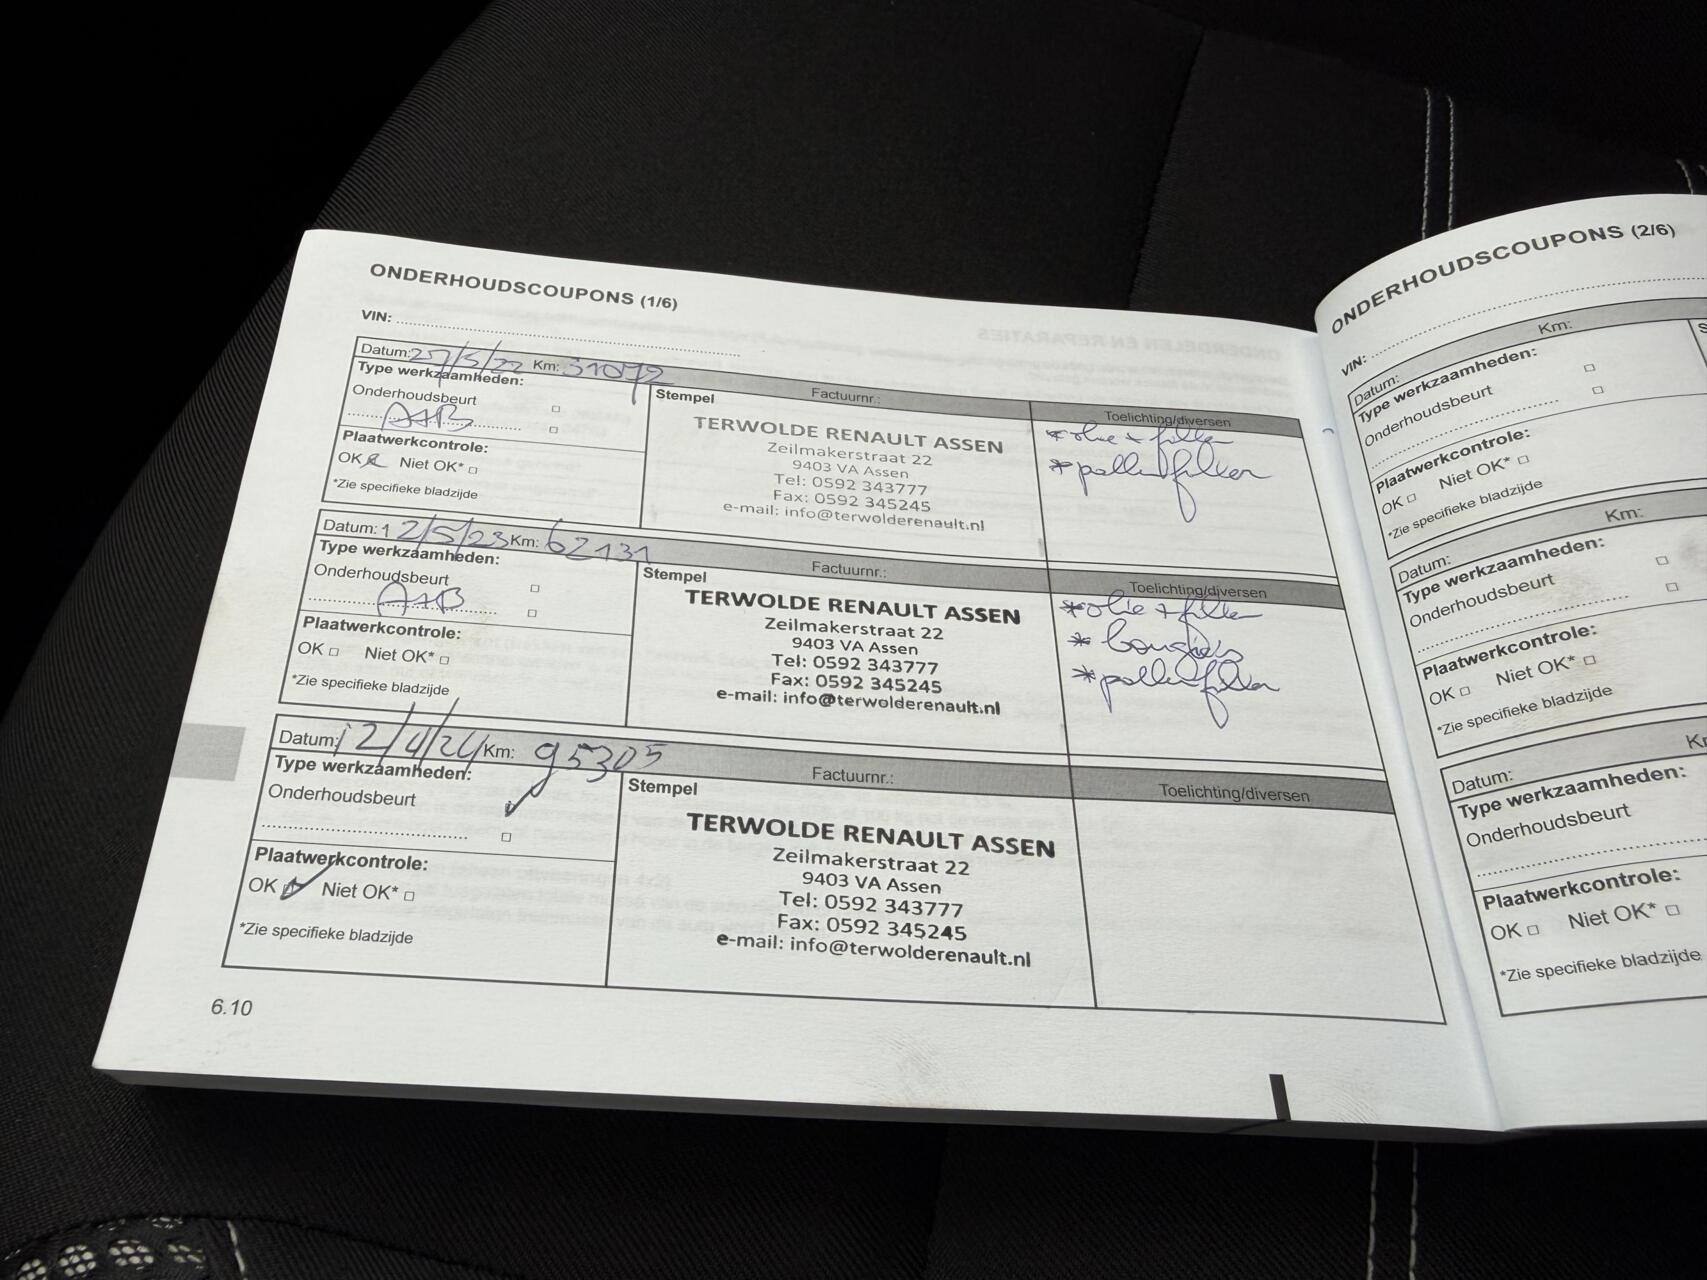 ONDERHOUDSCOUPONS (1/6)
VIN:
Datum: 27/5/22 Km: 31072 Factuurnr.:
Type werkzaamheden:
Onderhoudsbeurt
A+B
Plaatwerkcontrole:
OK Niet OK*
*Zie specifieke bladzijde
Stempel
TERWOLDE RENAULT ASSEN
Zeilmakerstraat 22
9403 VA Assen
Tel: 0592 343777
Fax: 0592 345245
e-mail: info@terwolderenault.nl
Toelichting/diversen
* olie + filter
* pollenfilter
Datum: 12/5/23 Km: 62131 Factuurnr.:
Type werkzaamheden:
Onderhoudsbeurt
A+B
Plaatwerkcontrole:
OK Niet OK*
*Zie specifieke bladzijde
Stempel
TERWOLDE RENAULT ASSEN
Zeilmakerstraat 22
9403 VA Assen
Tel: 0592 343777
Fax: 0592 345245
e-mail: info@terwolderenault.nl
Toelichting/diversen
* olie + filter
* bougies
* pollenfilter
Datum: 12/4/24 Km: 95305 Factuurnr.:
Type werkzaamheden:
Onderhoudsbeurt
Plaatwerkcontrole:
OK Niet OK*
*Zie specifieke bladzijde
Stempel
TERWOLDE RENAULT ASSEN
Zeilmakerstraat 22
9403 VA Assen
Tel: 0592 343777
Fax: 0592 345245
e-mail: info@terwolderenault.nl
Toelichting/diversen
6.10
ONDERHOUDSCOUPONS (2/6)
VIN:
Datum: Km:
Type werkzaamheden:
Onderhoudsbeurt
Plaatwerkcontrole:
OK Niet OK*
*Zie specifieke bladzijde
Datum: Km:
Type werkzaamheden:
Onderhoudsbeurt
Plaatwerkcontrole:
OK Niet OK*
*Zie specifieke bladzijde
Datum:
Type werkzaamheden:
Onderhoudsbeurt
Plaatwerkcontrole:
OK Niet OK*
*Zie specifieke bladzijde